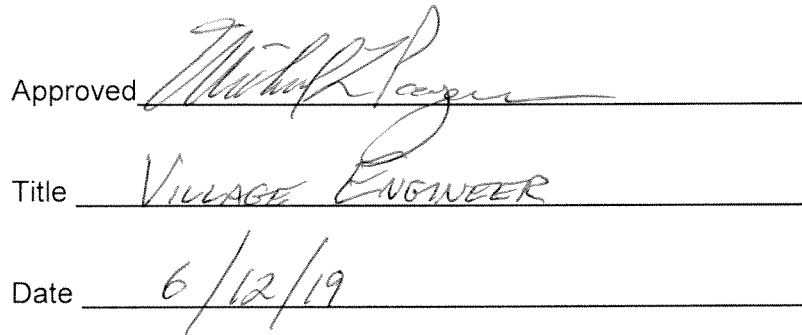 Approved
Title VILLAGE ENGINEER
Date 6/12/19